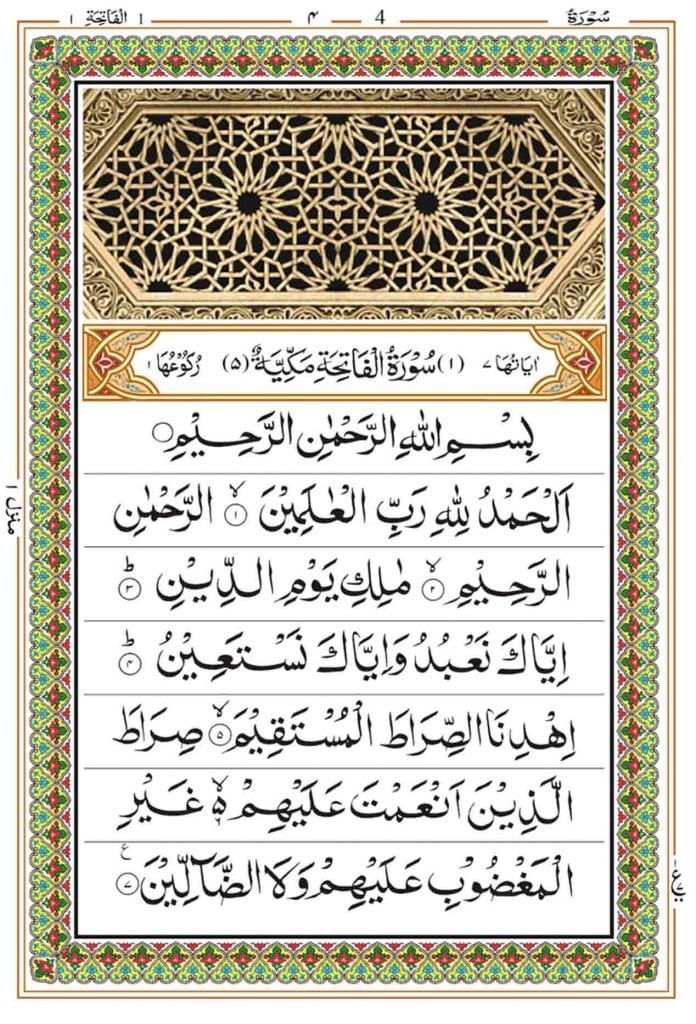 سُوْرَةُ 4 ۴ اَلْفَاتِحَةِ ١
اٰيَاتُهَا ٧ (١) سُوْرَةُ الْفَاتِحَةِ مَكِّيَّةٌ (٥) رُكُوْعُهَا ١
بِسْمِ اللّٰهِ الرَّحْمٰنِ الرَّحِيْمِ
اَلْحَمْدُ لِلّٰهِ رَبِّ الْعٰلَمِيْنَ ۙ‏ ﴿۱﴾ الرَّحْمٰنِ
الرَّحِيْمِ ۙ‏ ﴿۲﴾ مٰلِكِ يَوْمِ الدِّيْنِ ؕ‏ ﴿۳﴾
اِيَّاكَ نَعْبُدُ وَاِيَّاكَ نَسْتَعِيْنُ ؕ‏ ﴿۴﴾
اِهْدِنَا الصِّرَاطَ الْمُسْتَقِيْمَ ۙ‏ ﴿۵﴾ صِرَاطَ
الَّذِيْنَ اَنْعَمْتَ عَلَيْهِمْ ۙ۬ غَيْرِ
الْمَغْضُوْبِ عَلَيْهِمْ وَلَا الضَّآلِّيْنَ ﴿۷﴾ ع
منزل ١